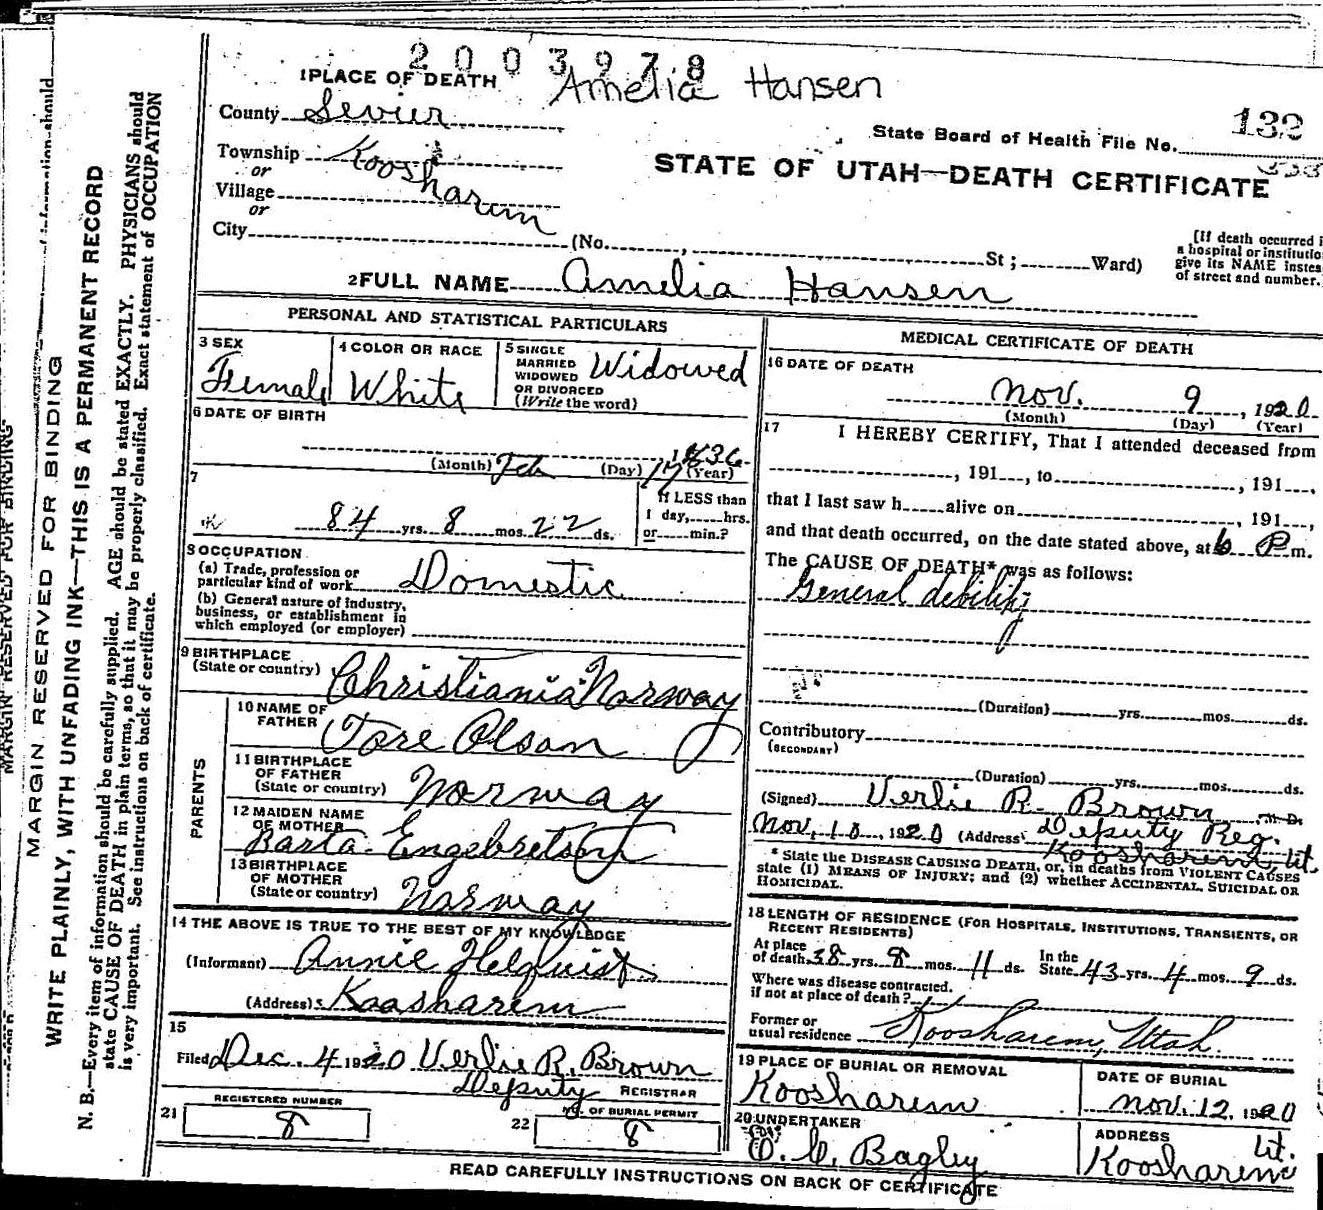 2003978
1 PLACE OF DEATH Amelia Hansen
County Sevier
132
State Board of Health File No.
Township Koosharem
or
Village
or
City (No. , St ; Ward)
STATE OF UTAH—DEATH CERTIFICATE
[If death occurred i
a hospital or institutio
give its NAME instea
of street and number.
2 FULL NAME Amelia Hansen
PERSONAL AND STATISTICAL PARTICULARS
3 SEX Female
4 COLOR OR RACE White
5 SINGLE
MARRIED
WIDOWED
OR DIVORCED
(Write the word) Widowed
6 DATE OF BIRTH
(Month) Feb (Day) 17 1836 (Year)
7
84 yrs. 8 mos. 22 ds.
If LESS than
1 day, hrs.
or min.?
8 OCCUPATION
(a) Trade, profession or
particular kind of work Domestic
(b) General nature of industry,
business, or establishment in
which employed (or employer)
9 BIRTHPLACE
(State or country) Christiania Norway
PARENTS
10 NAME OF
FATHER Tore Olson
11 BIRTHPLACE
OF FATHER
(State or country) Norway
12 MAIDEN NAME
OF MOTHER
Barta Engebretson
13 BIRTHPLACE
OF MOTHER
(State or country) Norway
14 THE ABOVE IS TRUE TO THE BEST OF MY KNOWLEDGE
(Informant) Annie Helquist
(Address) Koosharem
15
Filed Dec. 4 1920 Verlie R. Brown
Deputy REGISTRAR
21 REGISTERED NUMBER
8
22 NO. OF BURIAL PERMIT
8
MEDICAL CERTIFICATE OF DEATH
16 DATE OF DEATH
Nov. 9 , 1920
(Month) (Day) (Year)
17 I HEREBY CERTIFY, That I attended deceased from
, 191 , to , 191 ,
that I last saw h alive on , 191 ,
and that death occurred, on the date stated above, at 6 P m.
The CAUSE OF DEATH* was as follows:
General debility
(Duration) yrs. mos. ds.
Contributory
(SECONDARY)
(Duration) yrs. mos. ds.
(Signed) Verlie R. Brown , M. D.
Nov. 10 , 1920 (Address) Deputy Reg.
Koosharem, Ut.
* State the DISEASE CAUSING DEATH, or, in deaths from VIOLENT CAUSES
state (1) MEANS OF INJURY; and (2) whether ACCIDENTAL, SUICIDAL OR
HOMICIDAL.
18 LENGTH OF RESIDENCE (FOR HOSPITALS, INSTITUTIONS, TRANSIENTS, OR
RECENT RESIDENTS)
At place
of death 38 yrs. 8 mos. 11 ds. In the
State 43 yrs. 4 mos. 9 ds.
Where was disease contracted,
if not at place of death?
Former or
usual residence Koosharem, Utah
19 PLACE OF BURIAL OR REMOVAL
Koosharem
DATE OF BURIAL
Nov. 12, 1920
20 UNDERTAKER
O. C. Bagley
ADDRESS
Koosharem Ut.
READ CAREFULLY INSTRUCTIONS ON BACK OF CERTIFICATE
MARGIN RESERVED FOR BINDING
MARGIN RESERVED FOR BINDING
WRITE PLAINLY, WITH UNFADING INK—THIS IS A PERMANENT RECORD
N. B.—Every item of information should be carefully supplied. AGE should be stated EXACTLY. PHYSICIANS should
state CAUSE OF DEATH in plain terms, so that it may be properly classified. Exact statement of OCCUPATION
is very important. See instructions on back of certificate.